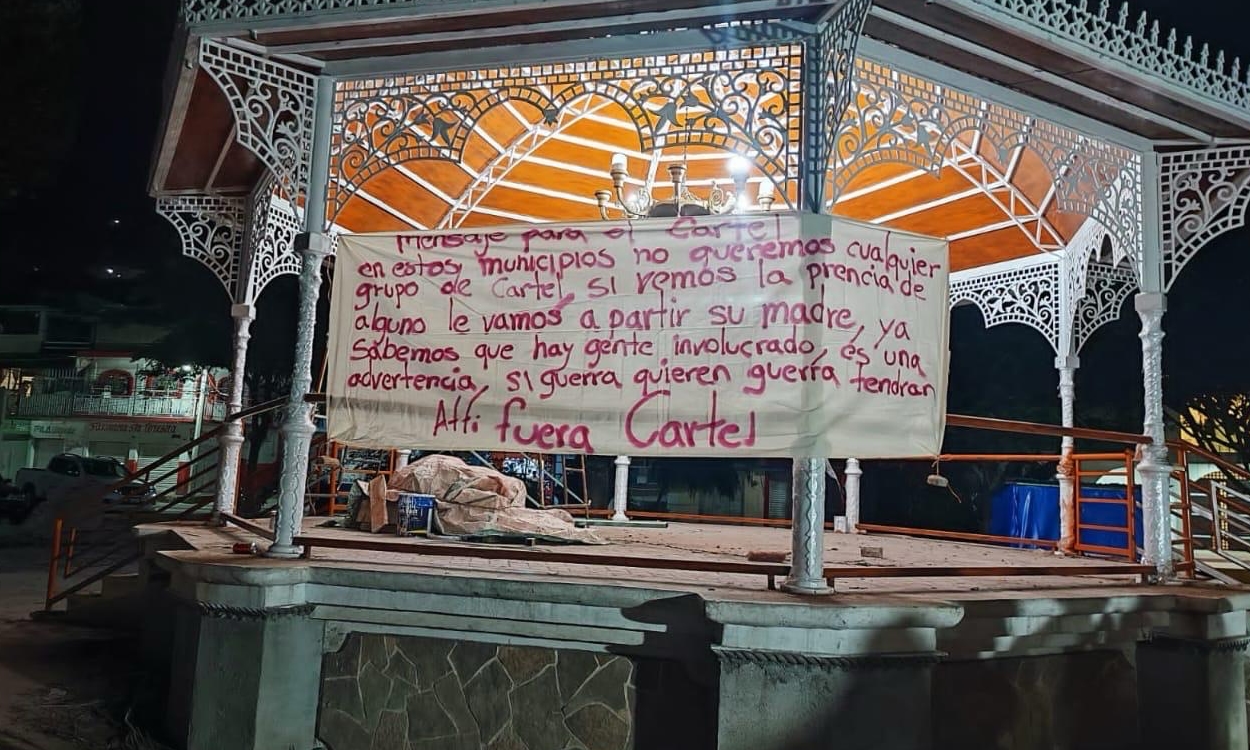 mensaje para el Cartel
en estos municipios no queremos cualquier
grupo de Cartel si vemos la prencia de
alguno le vamos a partir su madre, ya
sabemos que hay gente involucrado, es una
advertencia, si guerra quieren guerra tendran
Att: fuera Cartel